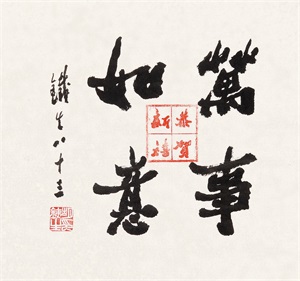 萬事
如意
恭賀
新禧
鐵生八十三